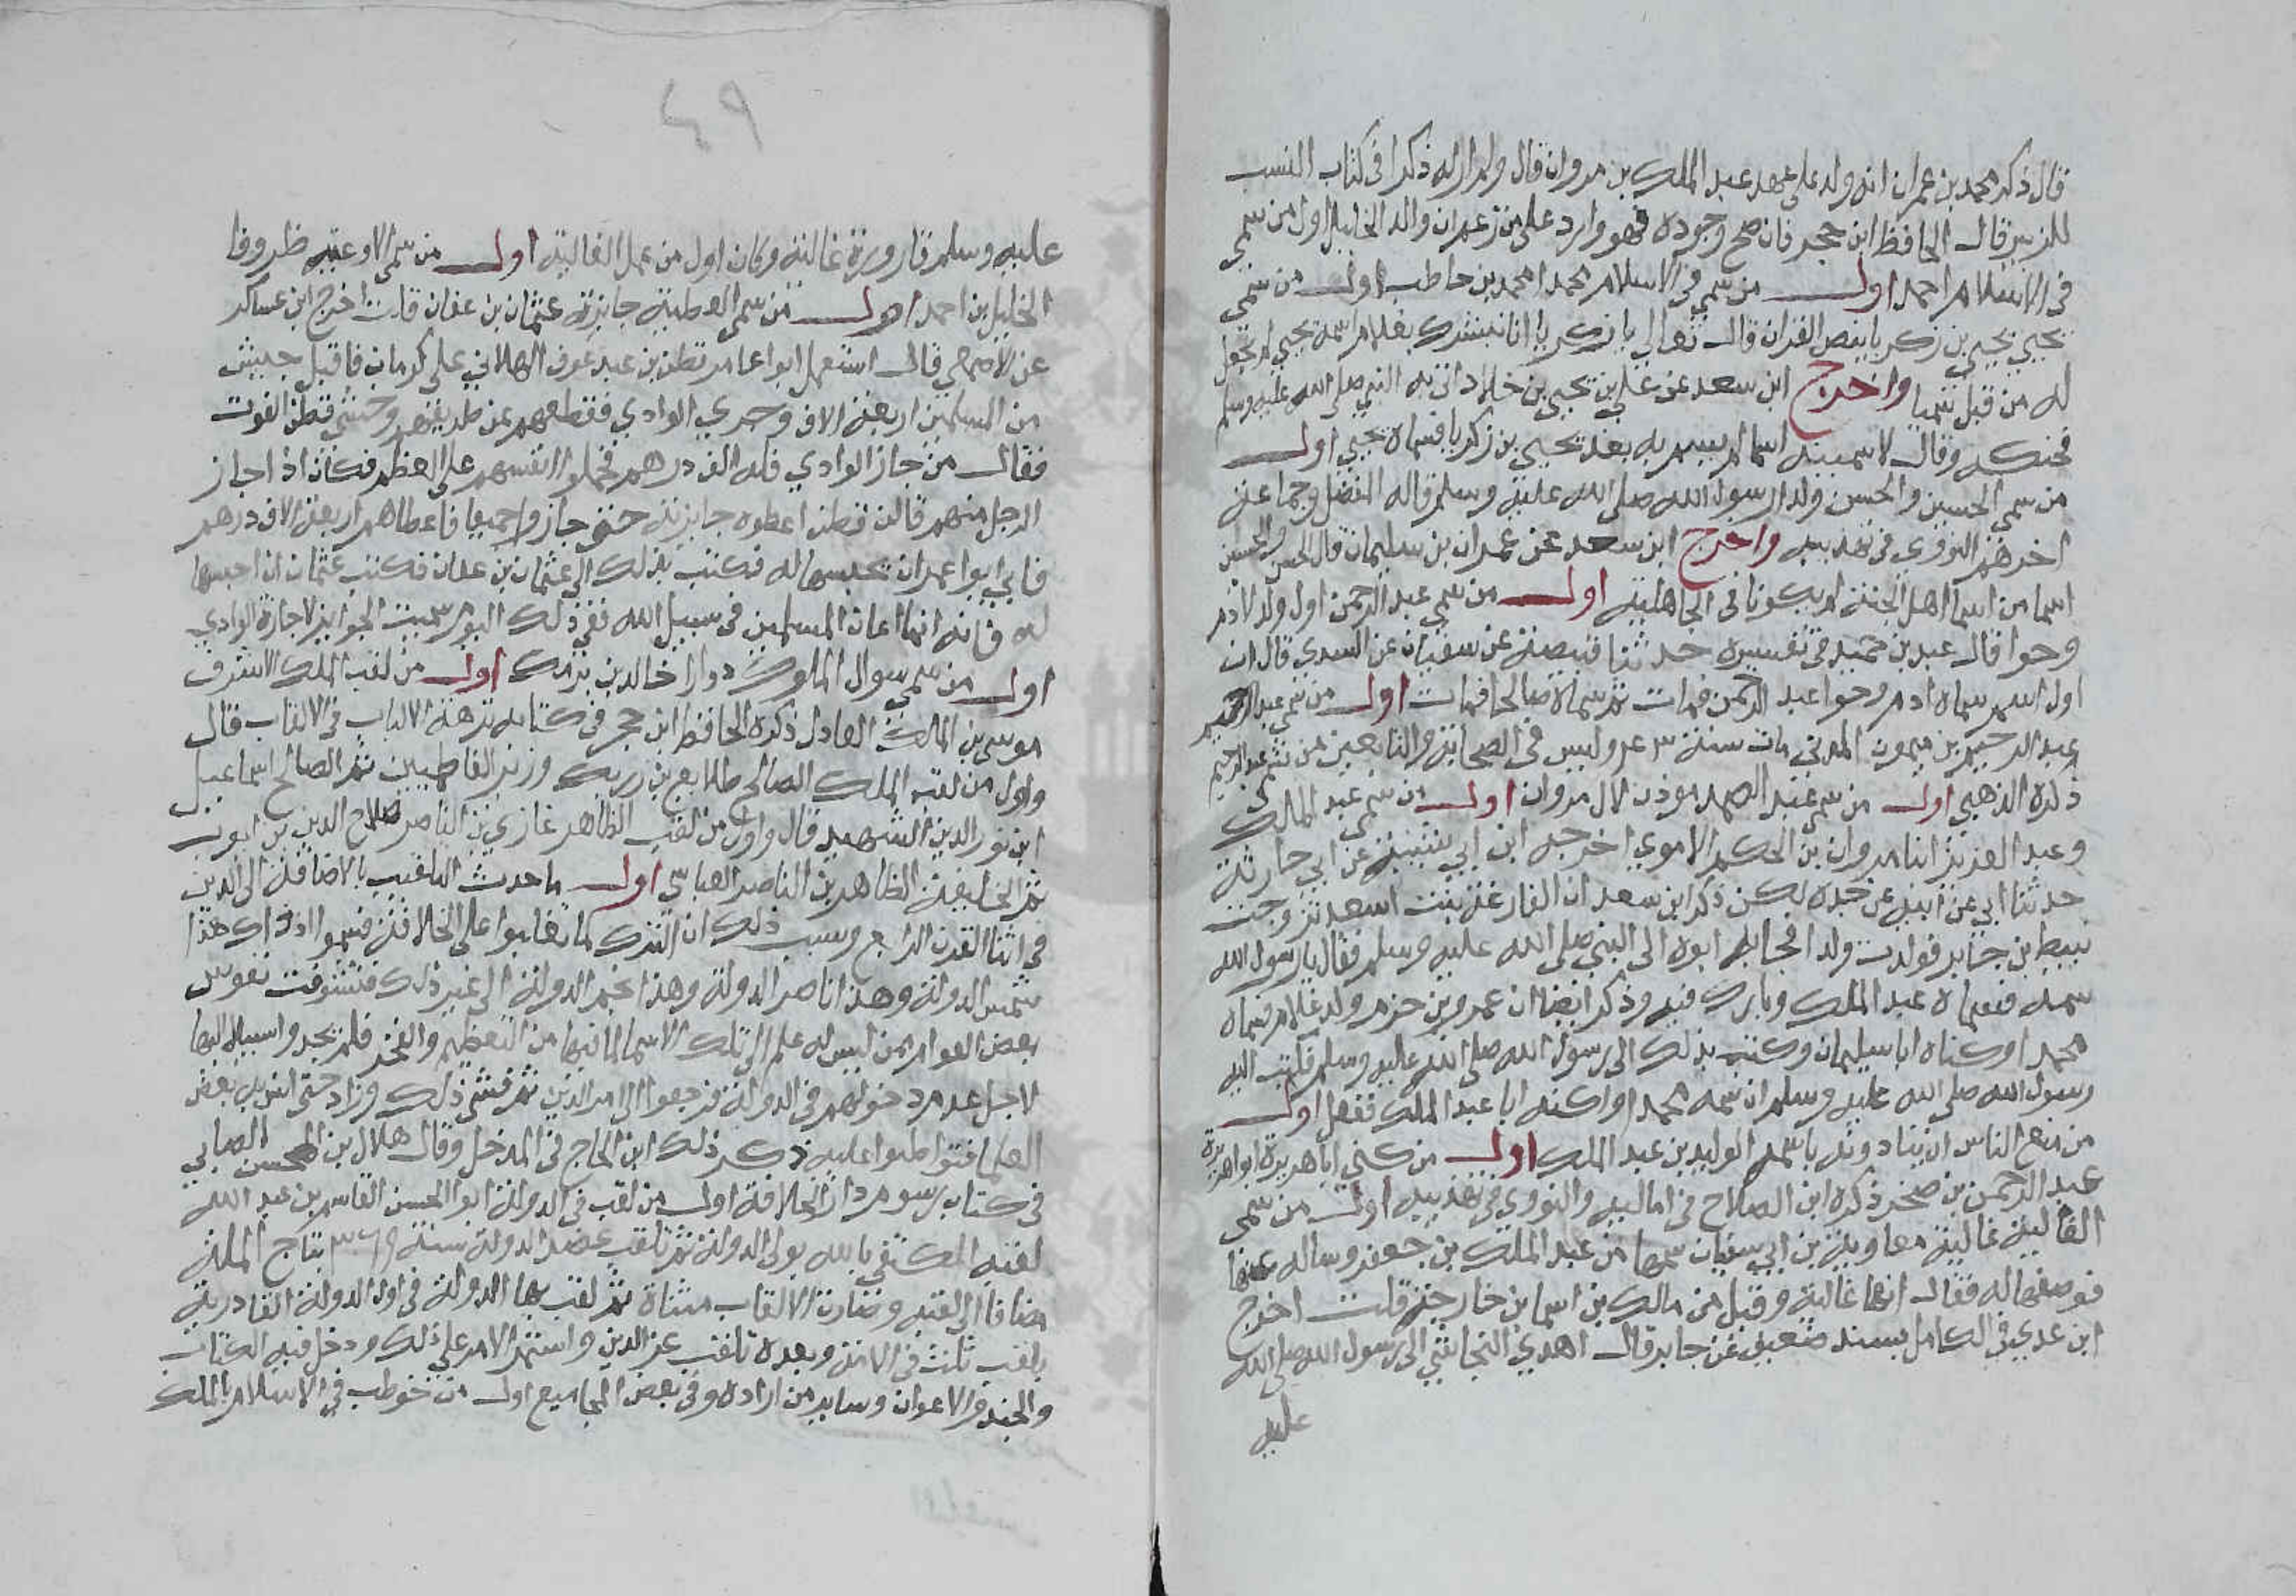 قال ذكر محمد بن عمران انه ولد على عهد عبد الملك بن مروان قال ولم ار له ذكرا في كتاب النسب
للزبير قال الحافظ ابن حجر فان صح وجوده فهو وارد على من زعم ان والد الخليل اول من سمي
في الاسلام احمد اول من سمي في الاسلام محمدا محمد بن حاطب اول من سمي
يحيي يحيي بن زكريا بنص القران قال تعالي يا زكريا انا نبشرك بغلام اسمه يحيي لم نجعل
له من قبل سميا واخرج ابن سعد عن علي بن يحيي بن خلاد اتي به النبي صلى الله عليه وسلم
فحنكه وقال لاسمينه اسما لم يسم به بعد يحيي بن زكريا فسماه يحيي اول
من سمي الحسين والحسن ولدا رسول الله صلى الله عليه وسلم قاله المفضل وجماعة
اخرهم النووي في تهذيبه واخرج ابن سعد عن عمران بن سليمان قال الحسن والحسين
اسما من اسما اهل الجنة لم يكونا في الجاهلية اول من سمي عبد الرحمن اول ولد لادم
وحوا قال عبد بن حميد في تفسيره حدثنا قبيصة عن سفيان عن السدي قال ان
اول اسم سماه ادم وحوا عبد الرحمن فمات ثم سماه صالحا فمات اول من سمي عبد الرحيم
عبد الرحيم بن ميمون المدني مات سنة وليس في الصحابة والتابعين من سمي عبد الرحيم
ذكره الذهبي اول من سمي عبد الصمد موذن لال مروان اول من سمي عبد الملك
وعبد العزيز ابنا مروان بن الحكم الاموي اخرجه ابن ابي شيبة عن ابي حارثة
حدثنا ابي عن ابيه عن جده لكن ذكر ابن سعد ان الفارغة بنت اسعد تزوجت
نبيط بن جابر فولدت ولدا فجا به ابوه الى النبي صلى الله عليه وسلم فقال يا رسول الله
سمه فسماه عبد الملك وبارك فيه وذكر ايضا ان عمرو بن حزم ولد غلام فسماه
محمدا وكناه ابا سليمان وكتب بذلك الى رسول الله صلى الله عليه وسلم فكتب اليه
رسول الله صلى الله عليه وسلم ان سمه محمدا واكنه ابا عبد الملك ففعل اول
من منع الناس ان ينادونه باسمه الوليد بن عبد الملك اول من كني ابا هريرة ابو هريرة
عبد الرحمن بن صخر ذكره ابن الصلاح في اماليه والنووي في تهذيبه اول من سمي
الغالية غالية معاوية بن ابي سفيان سمها من عبد الملك بن جعفر وساله عنها
فوصفها له فقال انها غالية وقيل من مالك بن اسما بن خارجة قلت اخرج
ابن عدي في الكامل بسند ضعيف عن جابر قال اهدي النجاشي الى رسول الله صلى الله
عليه
٤٩
عليه وسلم قارورة غالية وكان اول من عمل الغالية اول من سمي الاوعيه ظروفا
الخليل بن احمد اول من سمي العطية جايزة عثمان بن عفان قلت اخرج ابن عساكر
عن الاصمعي قال استعمل ابو عامر قطن بن عبد عوف الهلالي على كرمان فاقبل جيش
من المسلمين اربعة الاف وجري الوادي فقطعهم عن طريقهم وخشي قطن الفوت
فقال من جاز الوادي فله الف درهم فحملوا انفسهم على العظم فكان اذا جاز
الرجل منهم قال قطن اعطوه جايزته حتى جازوا جميعا فاعطاهم اربعة الاف درهم
فابي ابو عمر ان يحبسها له فكتب بذلك الى عثمان بن عفان فكتب عثمان ان احبسها
له فانه انما اعان المسلمين في سبيل الله ففي ذلك اليوم سميت الجوايز لاجازة الوادي
اول من سمي سوال الملوك زوارا خالد بن برمك اول من لقب الملك الاشرف
موسى بن الملك العادل ذكره الحافظ ابن حجر في كتابه نزهة الالباب في الالقاب قال
واول من لقب الملك الصالح طلايع بن رزيك وزير الفاطميين ثم الصالح اسماعيل
ابن نور الدين الشهيد قال واول من لقب الظاهر غازي بن الناصر صلاح الدين بن ايوب
ثم الخليفة الظاهر بن الناصر العباسي اول ما حدث التلقيب بالاضافة الى الدين
في اثنا القرن الرابع وسبب ذلك ان الترك لما تغلبوا على الخلافة فسموا اذ ذاك هذا
شمس الدولة وهذا ناصر الدولة وهذا نجم الدولة الى غير ذلك فتشوفت نفوس
بعض العوام ممن ليس له علم الى تلك الاسما لما فيها من التعظيم والفخر فلم يجدوا سبيلا اليها
لاجل عدم دخولهم في الدولة فرجعوا الى امر الدين ثم فشي ذلك وزاد حتى انس به بعض
العلما فتواطوا عليه ذكر ذلك ابن الحاج في المدخل وقال هلال بن المحسن الصابي
في كتاب رسوم دار الخلافة اول من لقب في الدولة ابو الحسن القاسم بن عبد الله
لقبه المكتفي بالله بولي الدولة ثم تلقب عضد الدولة سنة بتاج الملة
مضافا الى لقبه وصارت الالقاب مثناة ثم لقب بها الدولة في اول الدولة القادرية
بلقب ثلث في الامة وبعده تلقب عز الدين واستمر الامر على ذلك ودخل فيه الكتاب
والجند والاعوان وساير من اراده وفي بعض المجاميع اول من خوطب في الاسلام بالملك